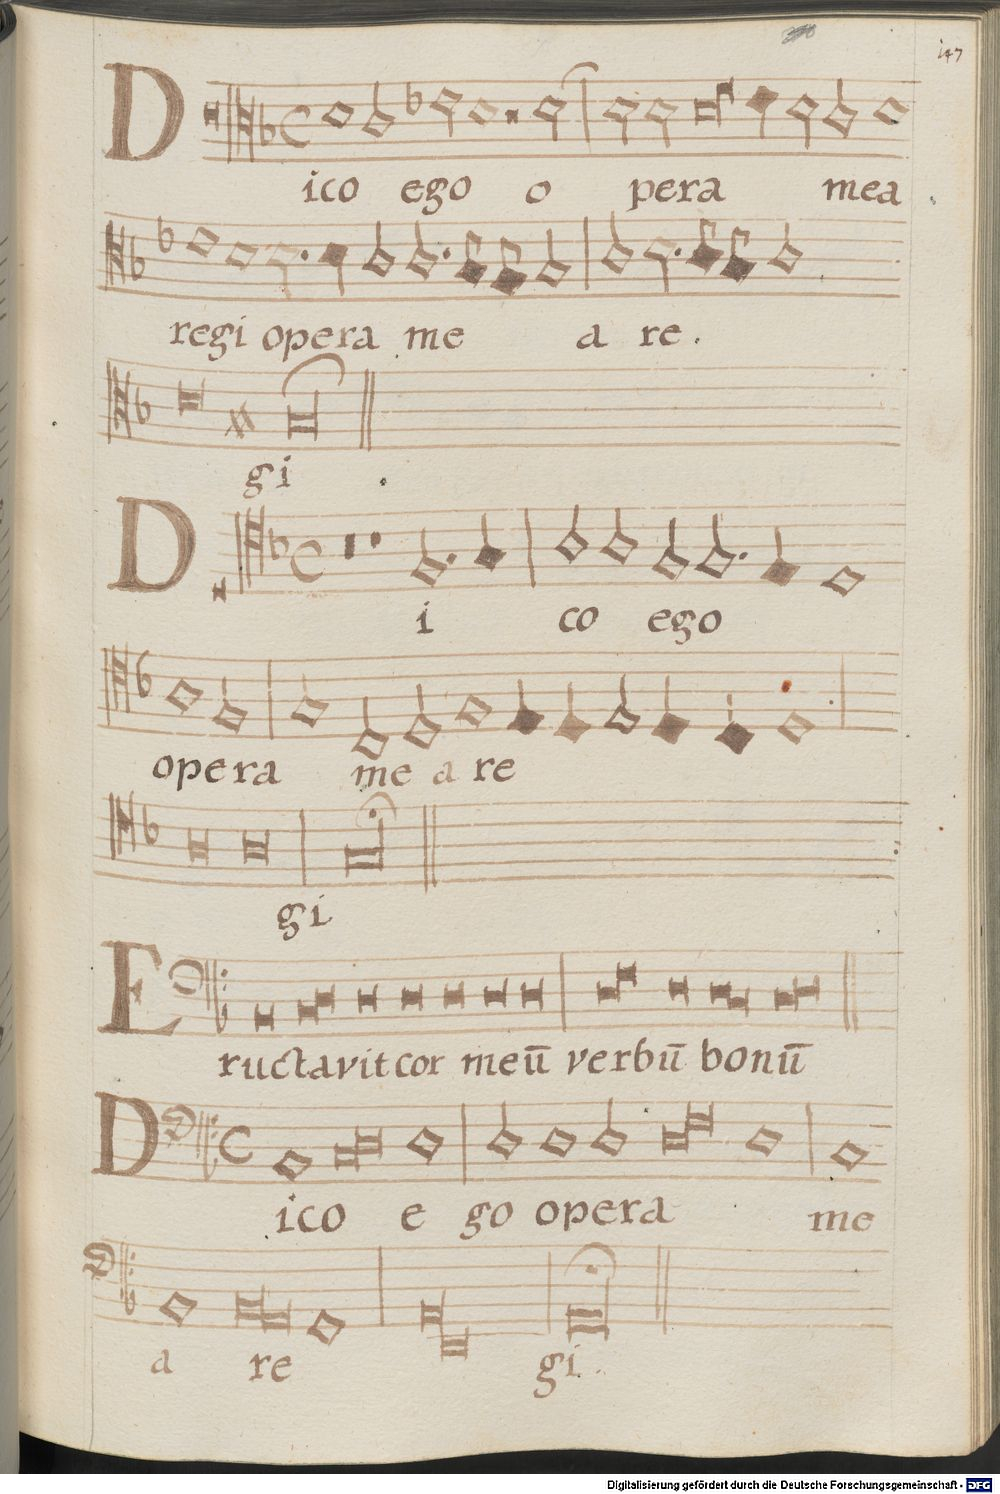 147
D ico ego o pera mea
regi opera me a re.
gi
D i co ego
opera me a re
gi
E ructavit cor meū verbū bonū
D ico e go opera me
a re gi.
Digitalisierung gefördert durch die Deutsche Forschungsgemeinschaft - DFG